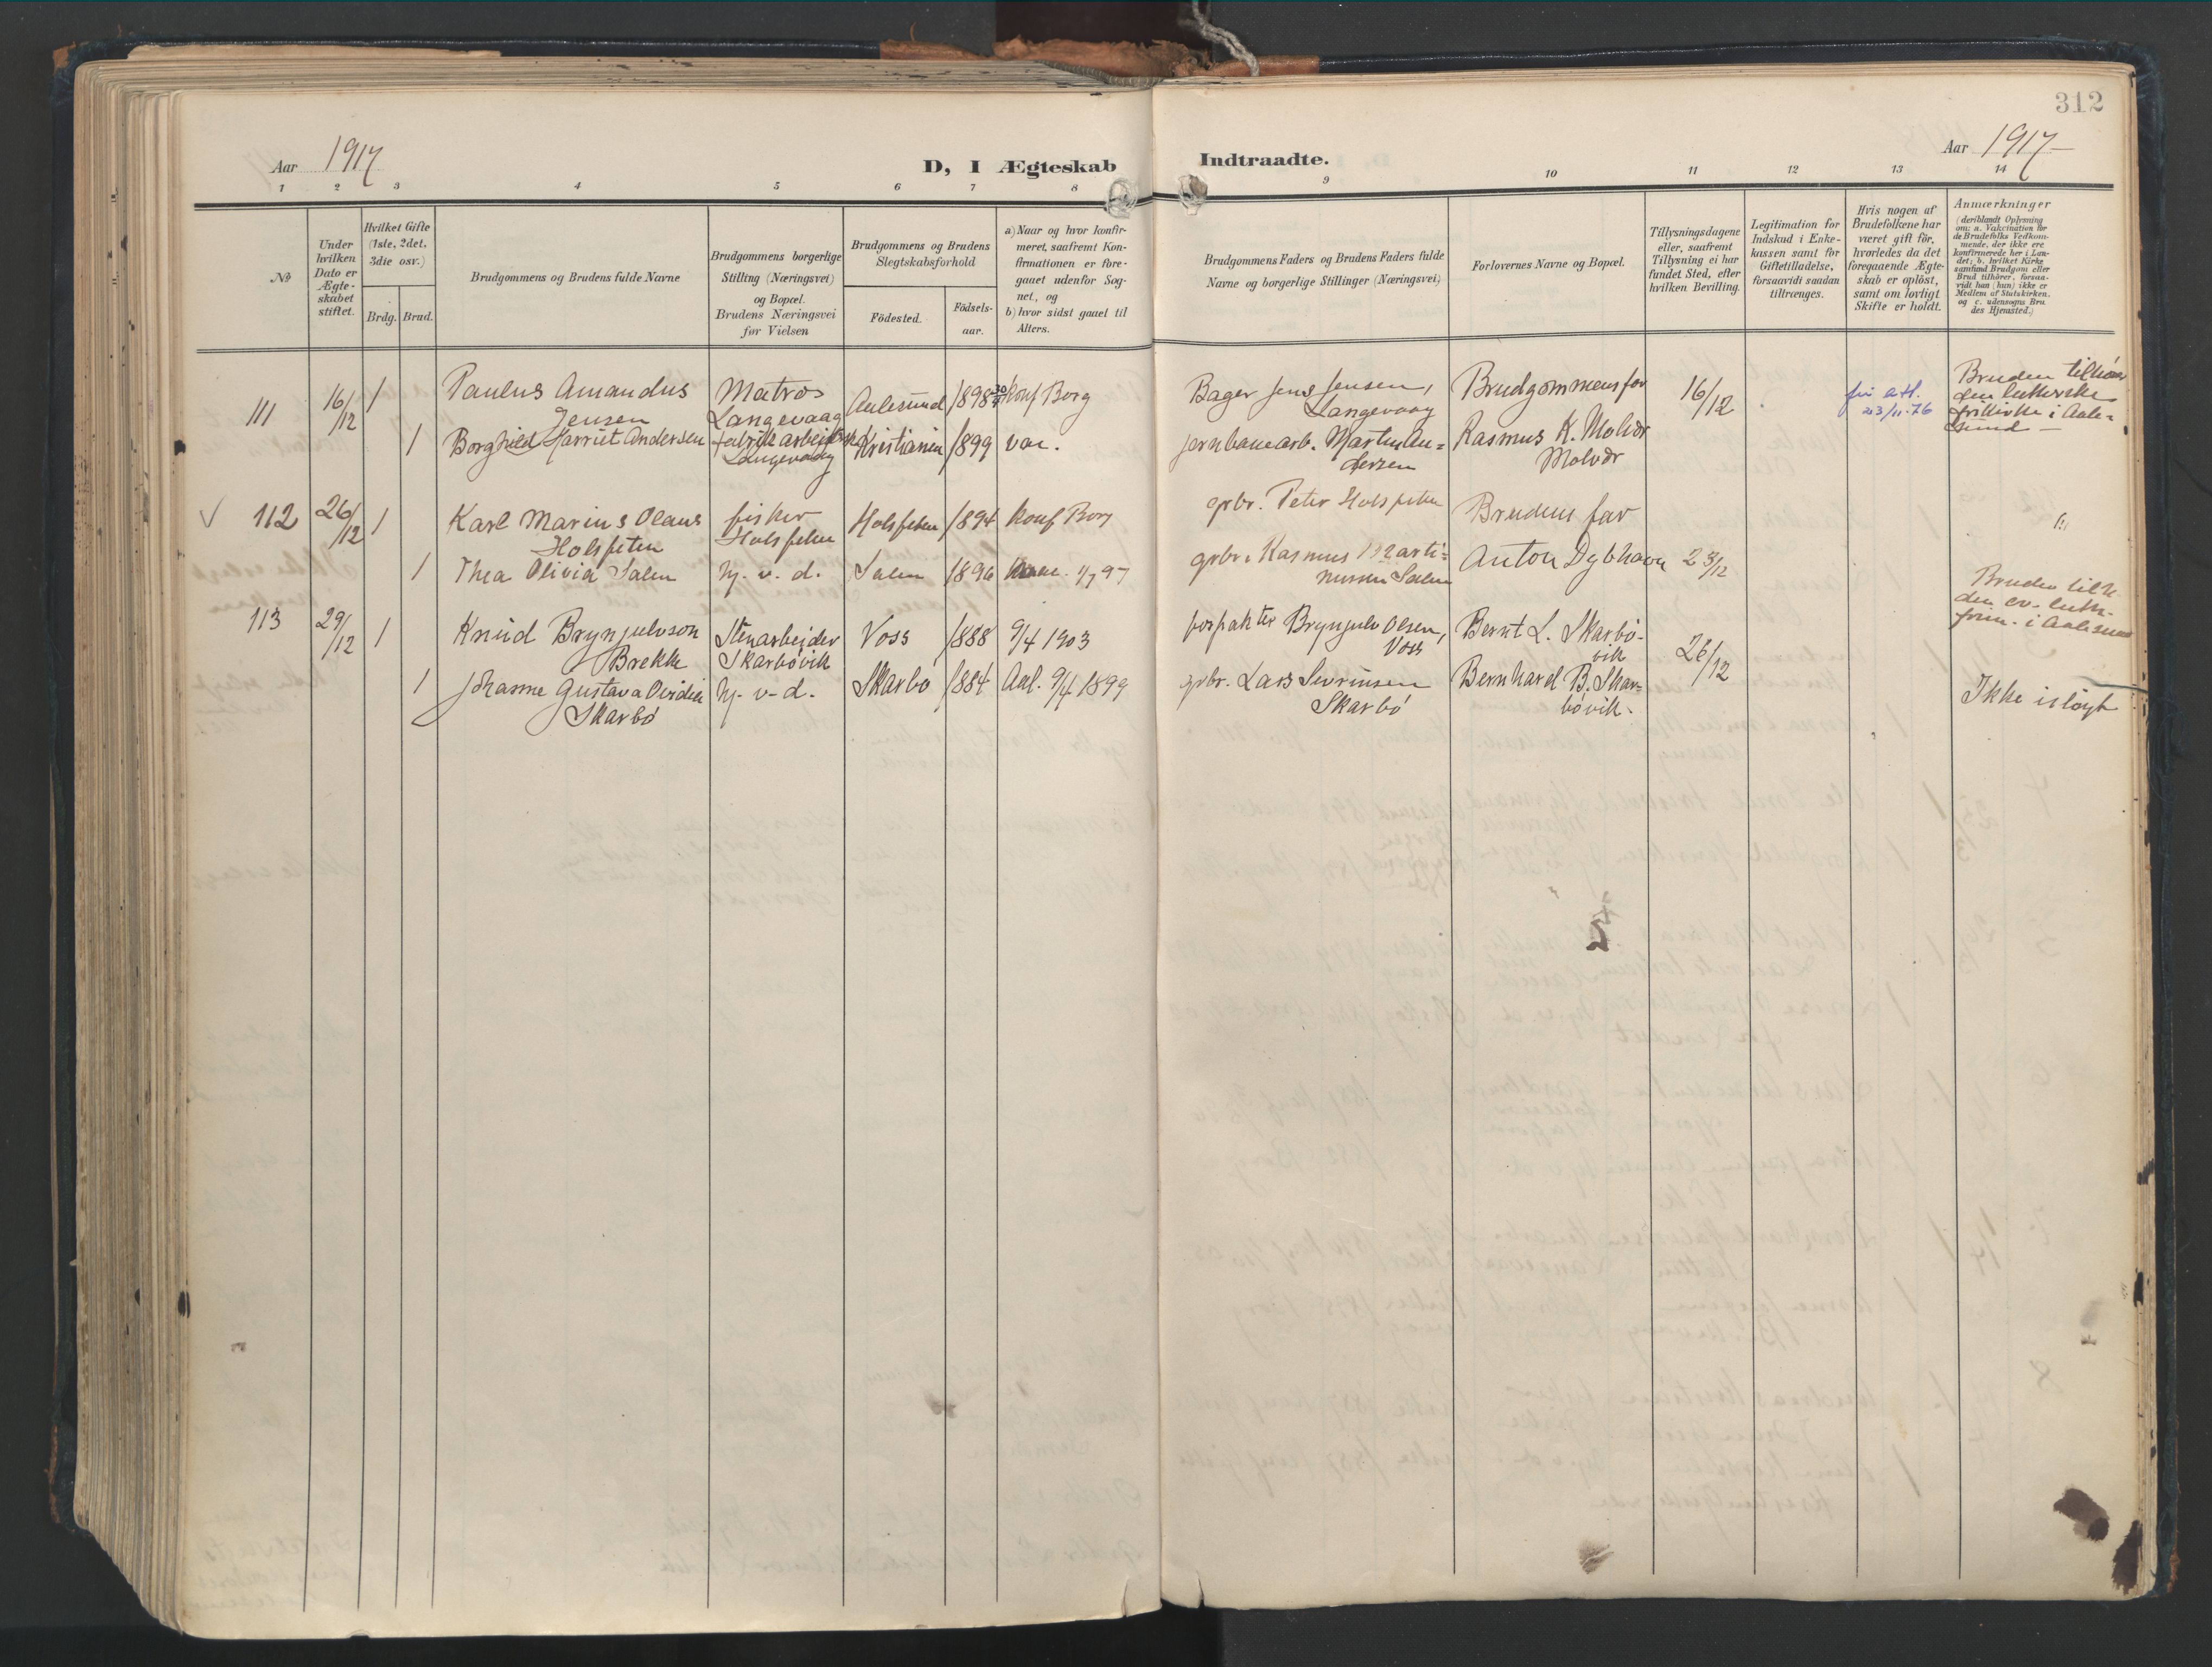 312
Aar 1917
D, I Ægteskab
Indtraadte.
Aar 1917
1 2 3 4 5 6 7 8 9 10 11 12 13 14
№
Under
hvilken
Dato er
Ægte-
skabet
stiftet.
Hvilket Gifte
(1ste, 2det,
3die osv.)
Brdg. Brud.
Brudgommens og Brudens fulde Navne
Brudgommens borgerlige
Stilling (Næringsvei)
og Bopæl.
Brudens Næringsvei
før Vielsen
Brudgommens og Brudens
Slegtskabsforhold
Födested.
Födsels-
aar.
a) Naar og hvor konfir-
meret, saafremt Kon-
firmationen er fore-
gaaet udenfor Sog-
net, og
b) hvor sidst gaaet til
Alters.
Brudgommens Faders og Brudens Faders fulde
Navne og borgerlige Stillinger (Næringsvei)
Forlovernes Navne og Bopæl.
Tillysningsdagene
eller, saafremt
Tillysning ei har
fundet Sted, efter
hvilken Bevilling.
Legitimation for
Indskud i Enke-
kassen samt for
Giftetilladelse,
forsaavidt saadan
tiltrænges.
Hvis nogen af
Brudefolkene har
været gift för,
hvorledes da det
foregaaende Ægte-
skab er oplöst,
samt om lovligt
Skifte er holdt.
Anmærkninger
(deriblandt Oplysning
om: a. Vakcination for
de Brudefolks Vedkom-
mende, der ikke ere
konfirmerede her i Lan-
det; b. hvilket Kirke
samfund Brudgom eller
Brud tilhörer, forsaa-
vidt han (hun) ikke er
Medlem af Statskirken,
og c. udensogns Bru
des Hjemsted.)
111
16/12
1
Paulus Amandus
Jensen
Matros
Langevaag
Aalesund
1898
Konf Borg
Bager Jens Jensen,
Langevaag
Brudgommens far
16/12
23/11-76
Bruden tilhör
den lutherske
frikirke i Aale-
sund
1
Borghild Harriet Andersen
Langevaag
Kristiania
1899
vac.
jernbanearb. Martin An-
dersen
Rasmus K. Molvær
Molvær
112
26/12
1
Karl Marius Olaus
Holsfeten
fisker
Holsfeten
Holsfeten
1894
Konf Borg
gbr. Peter Holsfeten
Brudens far
1
Thea Olivia Salen
hj. v. d.
Salen
1896
97
gbr. Rasmus Marti-
nussen Salen
Anton Dybhavn
23/12
113
29/12
1
Knud Brynjulvson
Brekke
Stenarbeider
Skarbövik
Voss
1888
9/4 1903
forpakter Brynjulv Olsen,
Voss
Bernt L. Skarbö-
vik
26/12
Bruden tilh.
den ev. luth.
frim. i Aalesund
1
Johanne Gustava Ovidia
Skarbö
hj. v. d.
Skarbö
1884
Aal. 9/4 1899
gbr. Lars Sevrinsen
Skarbö
Bernhard B. Skar-
bövik.
Ikke islöyt